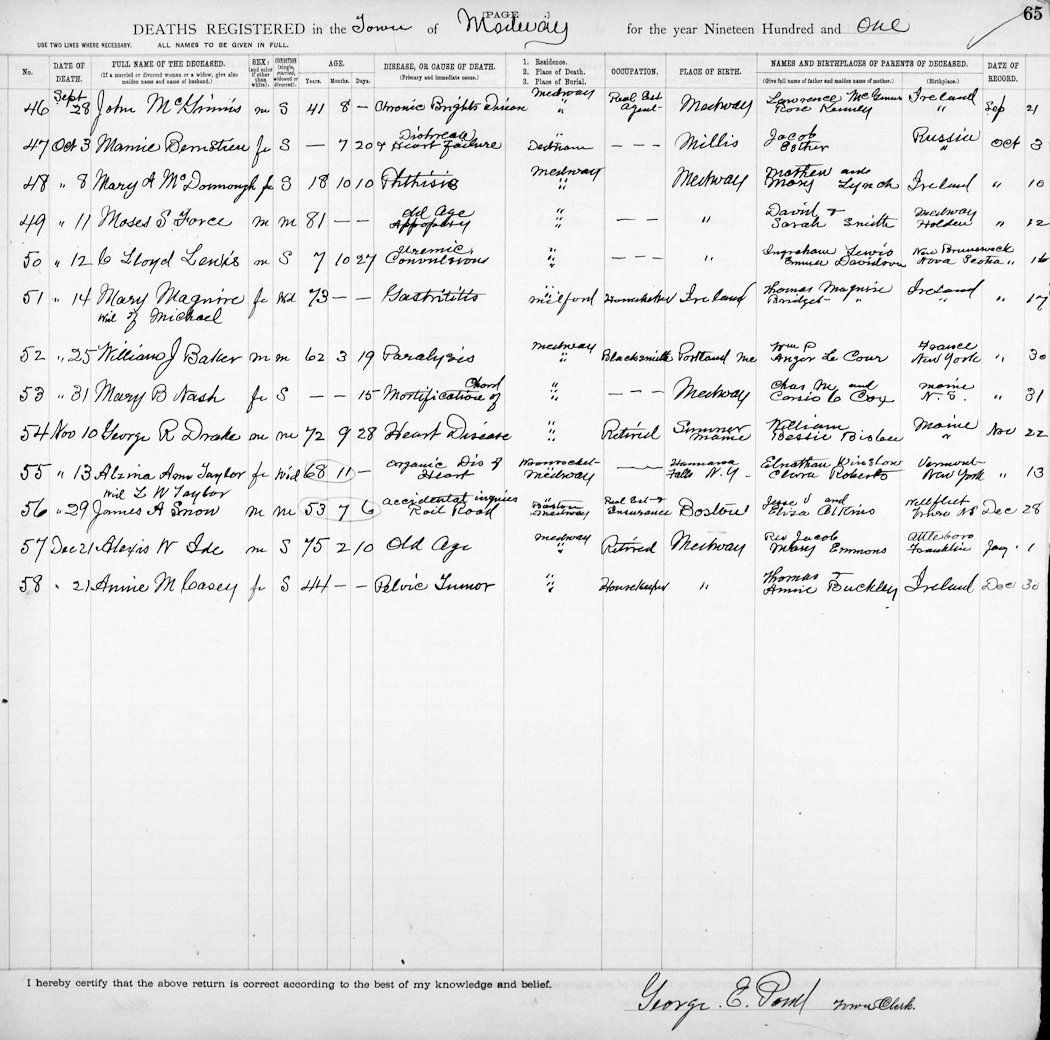 [PAGE ] 65
DEATHS REGISTERED in the Town of Medway for the year Nineteen Hundred and One
USE TWO LINES WHERE NECESSARY. ALL NAMES TO BE GIVEN IN FULL.
No. DATE OF DEATH. FULL NAME OF THE DECEASED. (If a married or divorced woman or a widow, give also maiden name and name of husband.) SEX: (and color if other than white). CONDITION (single, married, widowed or divorced). AGE. Years. Months. Days. DISEASE, OR CAUSE OF DEATH. (Primary and immediate cause.) 1. Residence. 2. Place of Death. 3. Place of Burial. OCCUPATION. PLACE OF BIRTH. NAMES AND BIRTHPLACES OF PARENTS OF DECEASED. (Give full name of father and maiden name of mother.) (Birthplace.) DATE OF RECORD.
Sept Medway Real Est Lawrence Ireland
46 28 John m S 41 8 – Chronic Brights Disease " Agent Medway Rose Kenney " Sep 21
Distress " Jacob Russia
47 Oct 3 Mamie Bernstein fe S – 7 20 & Heart Failure Dedham – – – Millis Esther " Oct 3
Medway and
48 " 8 Mary A McDonnough fe S 18 10 10 Phthisis " Medway Mary Lynch Ireland " 10
Old Age " David & Medway
49 " 11 Moses S Force m m 81 – – Appoplexy " – – – " Sarah Smith Holden " 12
Uremic " Ingraham Lewis New Brunswick
50 " 12 C Lloyd Lewis m S 7 10 27 Convulsions " – – – " Emma Davidson Nova Scotia " 16
" Thomas Maguire Ireland
51 " 14 Mary Maguire fe Wd 73 – – Gastritis Milford Housekeeper Ireland Bridget " " " 17
Wid of Michael
Medway Wm P France
52 " 25 William J Baker m m 62 3 19 Paralysis " Blacksmith Portland Me Le Cour New York " 30
Chord " Chas M and Maine
53 " 31 Mary B Nash fe S – – 15 Mortification of " – – – Medway Cox N.S. " 31
" Sumner William Maine
54 Nov 10 George R Drake m m 72 9 28 Heart Disease " Retired Maine Bessie Bisbee " Nov 22
Organic Dis of Woonsocket Elnathan Winslow Vermont
55 " 13 Alzina Ann Taylor fe Wid 68 11 – Heart Medway – Falls N.Y. Roberts New York " 13
Wid L W Taylor
accidental injuries Boston Real Est & Jesse and Wellfleet
56 " 29 James A Snow m m 53 7 6 Rail Road Medway Insurance Boston Eliza Atkins Dec 28
Medway Rev Jacob Attleboro
57 Dec 21 Alexis W Ide m S 75 2 10 Old Age " Retired Medway Mary Emmons Franklin Jany 1
" Thomas &
58 " 21 Annie M Casey fe S 44 – – Pelvic Tumor " Housekeeper " Annie Buckley Ireland Dec 30
I hereby certify that the above return is correct according to the best of my knowledge and belief.
George E. Pond Town Clerk.